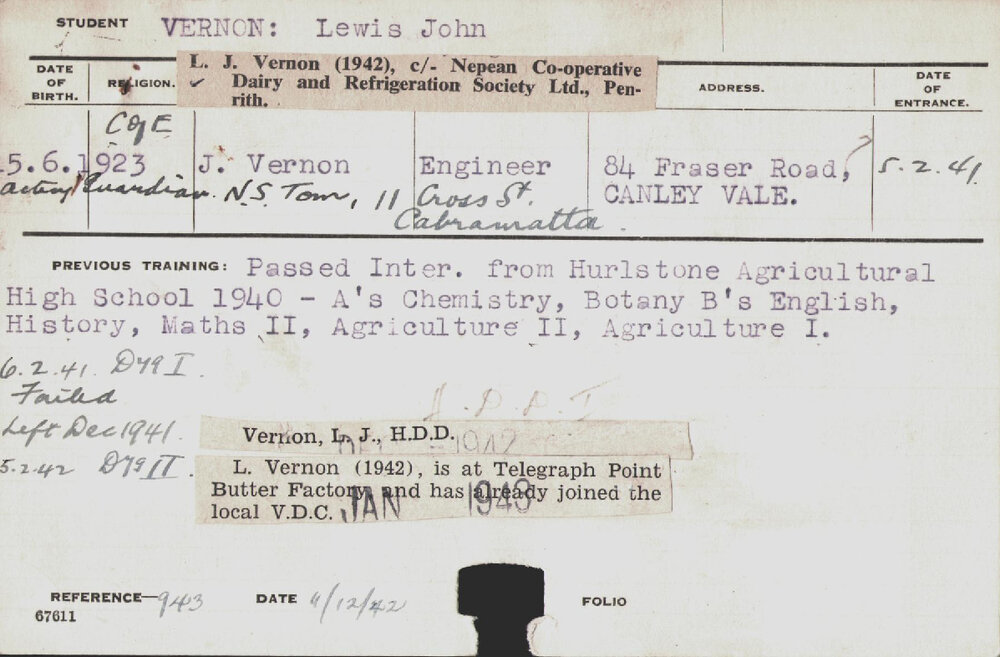 STUDENT VERNON: Lewis John
L. J. Vernon (1942), c/- Nepean Co-operative
Dairy and Refrigeration Society Ltd., Pen-
rith.
DATE OF BIRTH. RELIGION. ADDRESS. DATE OF ENTRANCE.
C of E
5.6.1923 J. Vernon Engineer 84 Fraser Road, ? 5.2.41.
acting Guardian. N.S. Tom, 11 Cross St. CANLEY VALE.
Cabramatta.
PREVIOUS TRAINING: Passed Inter. from Hurlstone Agricultural
High School 1940 - A's Chemistry, Botany B's English,
History, Maths II, Agriculture II, Agriculture I.
6.2.41. DyI.
Failed
Left Dec 1941.
Vernon, L. J., H.D.D.
1942
5.2.42 DyII.
L. Vernon (1942), is at Telegraph Point
Butter Factory and has already joined the
local V.D.C.
JAN 1943
REFERENCE 943 DATE 4/12/42 FOLIO
67611